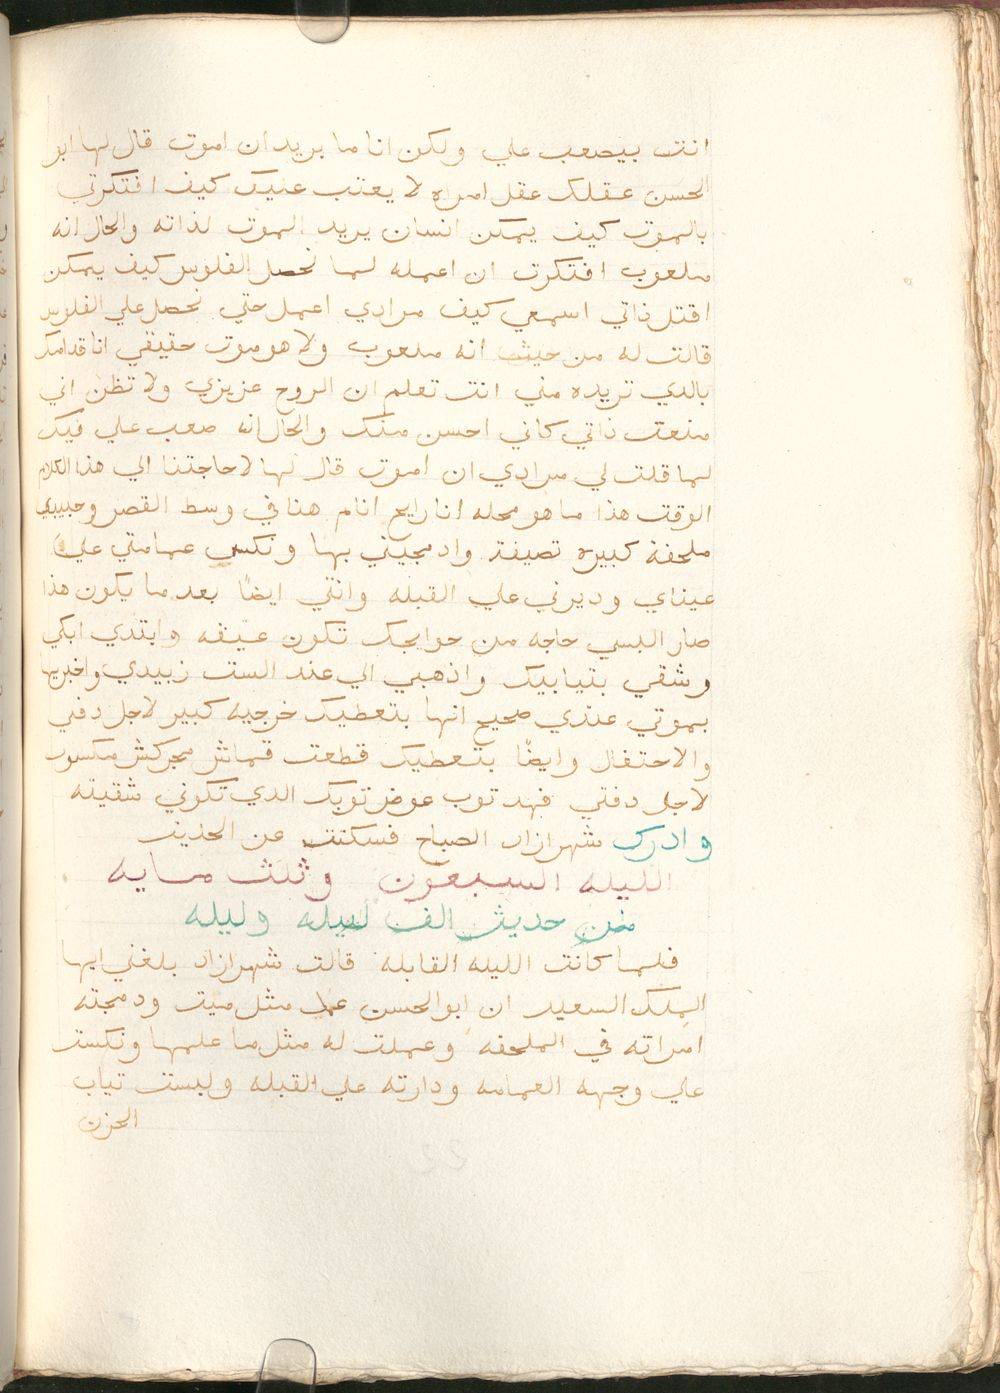 انت بيصعب علي ولكن انا ما بريد ان اموت قال لها ابو
الحسن عقلك عقل امراه لا يعتب عليك كيف افتكرتي
بالموت كيف يمكن انسان يريد الموت لذاته والحال انه
ملعوب افتكرت ان اعمله لما نحصل الفلوس كيف يمكن
اقتل ذاتي اسمعي كيف مرادي اعمل حتي نحصل علي الفلوس
قالت له من حيث انه ملعوب ولا هو موت حقيقي انا قدامك
بالدي تريده مني انت تعلم ان الروح عزيزي ولا تظن اني
منعت ذاتي كاني احسن منك والحال انه صعب علي فيك
لما قلت لي مرادي ان اموت قال لها لا حاجتنا الي هذا الكلام
الوقت هذا ما هو محله انا رايح انام هنا في وسط القصر وجيبي
ملحفة كبيره نصيفة وادمجيني بها ونكسي عمامتي علي
عيناي وديرني علي القبله وانتي ايضًا بعد ما يكون هذا
صار البسي حاجه من حوايجك تكون عتيقه وابتدي ابكي
وشقي بتيابيك واذهبي الي عند الست زبيدي واخبريها
بموتي عندي صحيح انها بتعطيك خرجيه كبير لاجل دفني
والاحتفال وايضًا بتعطيك قطعت قماش مجركش مكسور
لاجل دفتي فهد توب عوض توبك الدي تكوني شقيته
وادرك شهرازاد الصباح فسكتت عن الحديت
الليله السبعون وثلث مايه
من حديث الف ليله وليله
فلما كانت الليله القابله قالت شهرازاد بلغني ايها
الملك السعيد ان ابو الحسن عمل مثل ميت ودمجته
امراته في الملحفه وعملت له مثل ما علمها ونكست
علي وجهه العمامه ودارته علي القبله ولبست تياب
الحزن